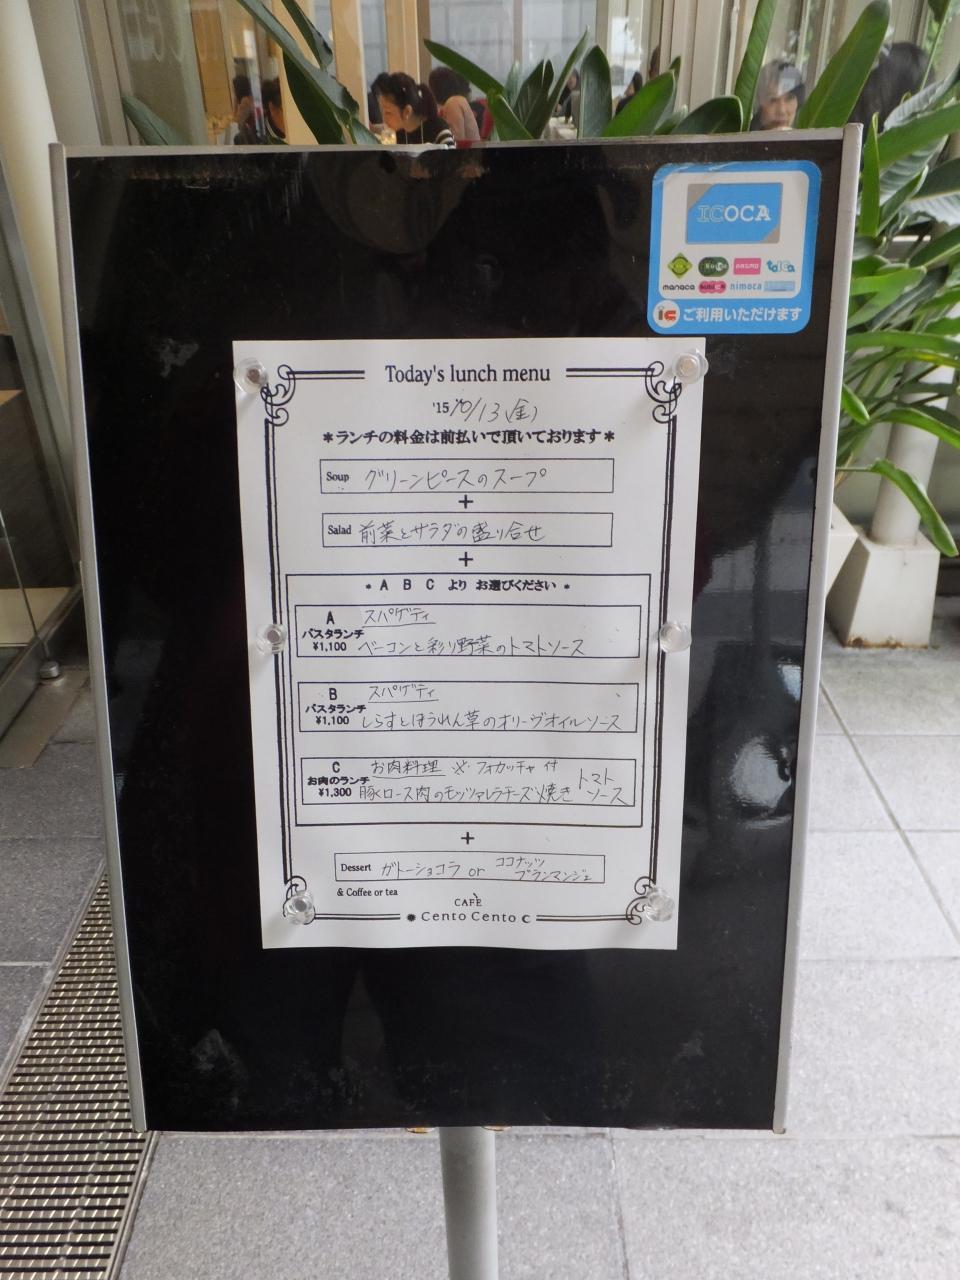 ICOCA
PASMO
TOICA
manaca
SUGOCA
nimoca
IC ご利用いただけます
Today's lunch menu
'15 10/13(金)
*ランチの料金は前払いで頂いております*
Soup グリーンピースのスープ
+
Salad 前菜とサラダの盛り合せ
+
* A B C より お選びください *
A スパゲティ
パスタランチ
¥1,100 ベーコンと彩り野菜のトマトソース
B スパゲティ
パスタランチ
¥1,100 しらすとほうれん草のオリーヴオイルソース
C お肉料理 ※フォカッチャ付
お肉のランチ
¥1,300 豚ロース肉のモッツァレラチーズ焼き トマトソース
+
Dessert ガトーショコラ or ココナッツブランマンジェ
& Coffee or tea
CAFÈ
Cento Cento